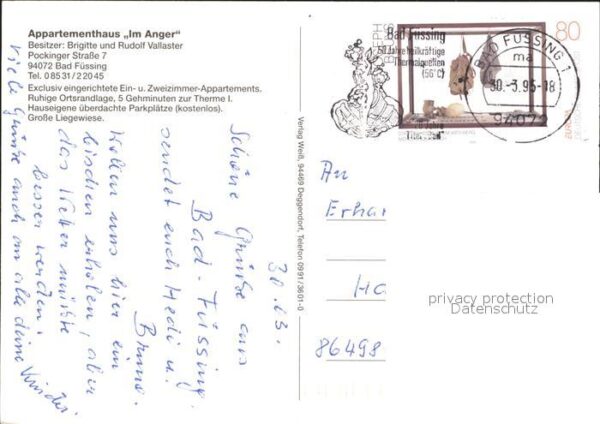 Appartementhaus „Im Anger“
Besitzer: Brigitte und Rudolf Vallaster
Pockinger Straße 7
94072 Bad Füssing
Tel. 0 85 31 / 2 20 45
Exclusiv eingerichtete Ein- u. Zweizimmer-Appartements.
Ruhige Ortsrandlage, 5 Gehminuten zur Therme I.
Hauseigene überdachte Parkplätze (kostenlos).
Große Liegewiese.
30.03.
Schöne Grüße aus
Bad-Füssing
sendet euch Hedi u.
Bruno.
Wollen uns hier ein
bischen erholen, aber
das Wetter müsste
besser werden.
Viele Grüße auch an alle deine Kinder.
Verlag Weiß, 94469 Deggendorf, Telefon 09 91 / 36 01-0
Bad Füssing
50 Jahre heilkräftige
Thermalquellen
(56°C)
80
BAD FÜSSING 1
ma
30.-3.95-18
94072
An
Erhar
86498
privacy protection
Datenschutz